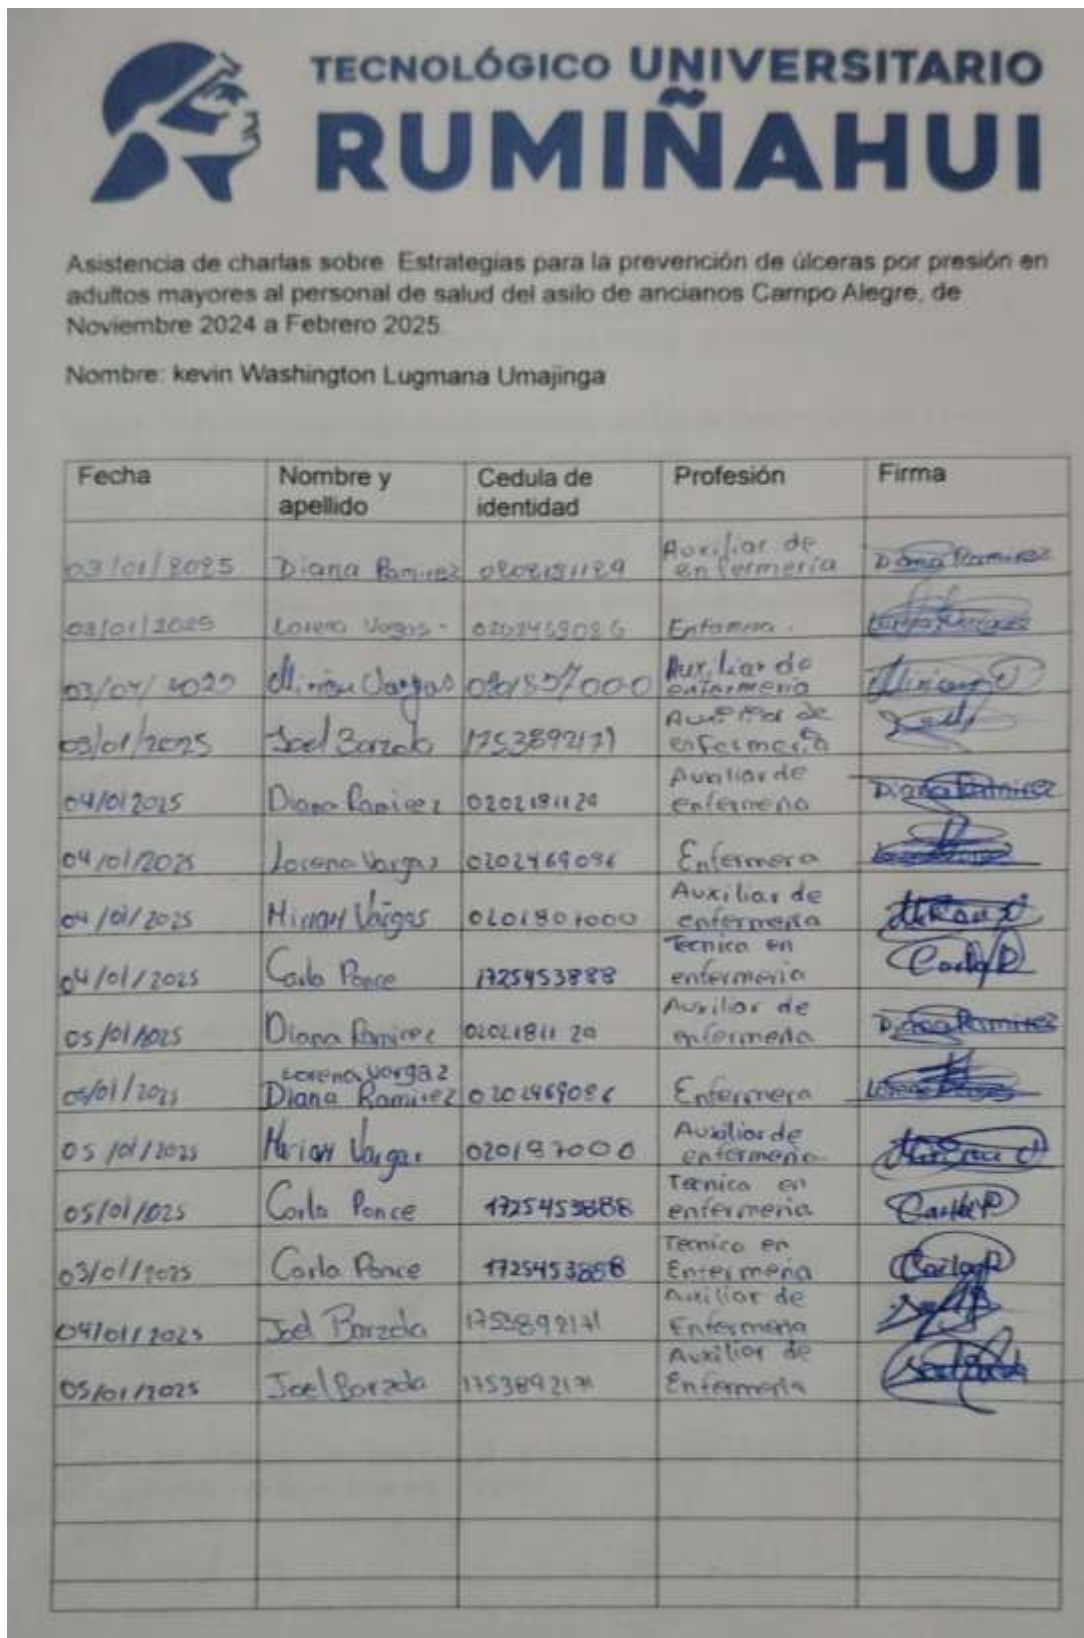 TECNOLÓGICO UNIVERSITARIO
RUMIÑAHUI
Asistencia de charlas sobre Estrategias para la prevención de úlceras por presión en
adultos mayores al personal de salud del asilo de ancianos Campo Alegre, de
Noviembre 2024 a Febrero 2025.
Nombre: kevin Washington Lugmana Umajinga
Fecha Nombre y apellido Cedula de identidad Profesión Firma
03/01/2025 Diana Ramirez Auxiliar de enfermería Diana Ramirez
03/01/2025 Lorena Vargas
Vargas Auxiliar de enfermeria
03/01/2025 Joel Barzola 1753892171 Auxiliar de enfermería
04/01/2025 Diana Ramirez 0202181129 Auxiliar de enfermeria Diana Ramirez
04/01/2025 Lorena Vargas 0202469096 Enfermera
04/01/2025 Miriam Vargas Auxiliar de enfermeria
04/01/2025 Carla Ponce 1725453888 Tecnico en enfermeria Carla P
05/01/2025 Diana Ramirez Auxiliar de enfermeria Diana Ramirez
05/01/2025 Lorena Vargaz Diana Ramirez Enfermera
05/01/2025 Miriam Vargas 020187000 Auxiliar de enfermeria
05/01/2025 Carla Ponce 1725453888 Tecnico en enfermeria Carla P
03/01/2025 Carla Ponce Tecnico en Enfermeria Carla P
04/01/2025 Joel Barzola 1753892171 Auxiliar de Enfermeria
05/01/2025 Joel Barzola 1753892171 Auxiliar de Enfermeria